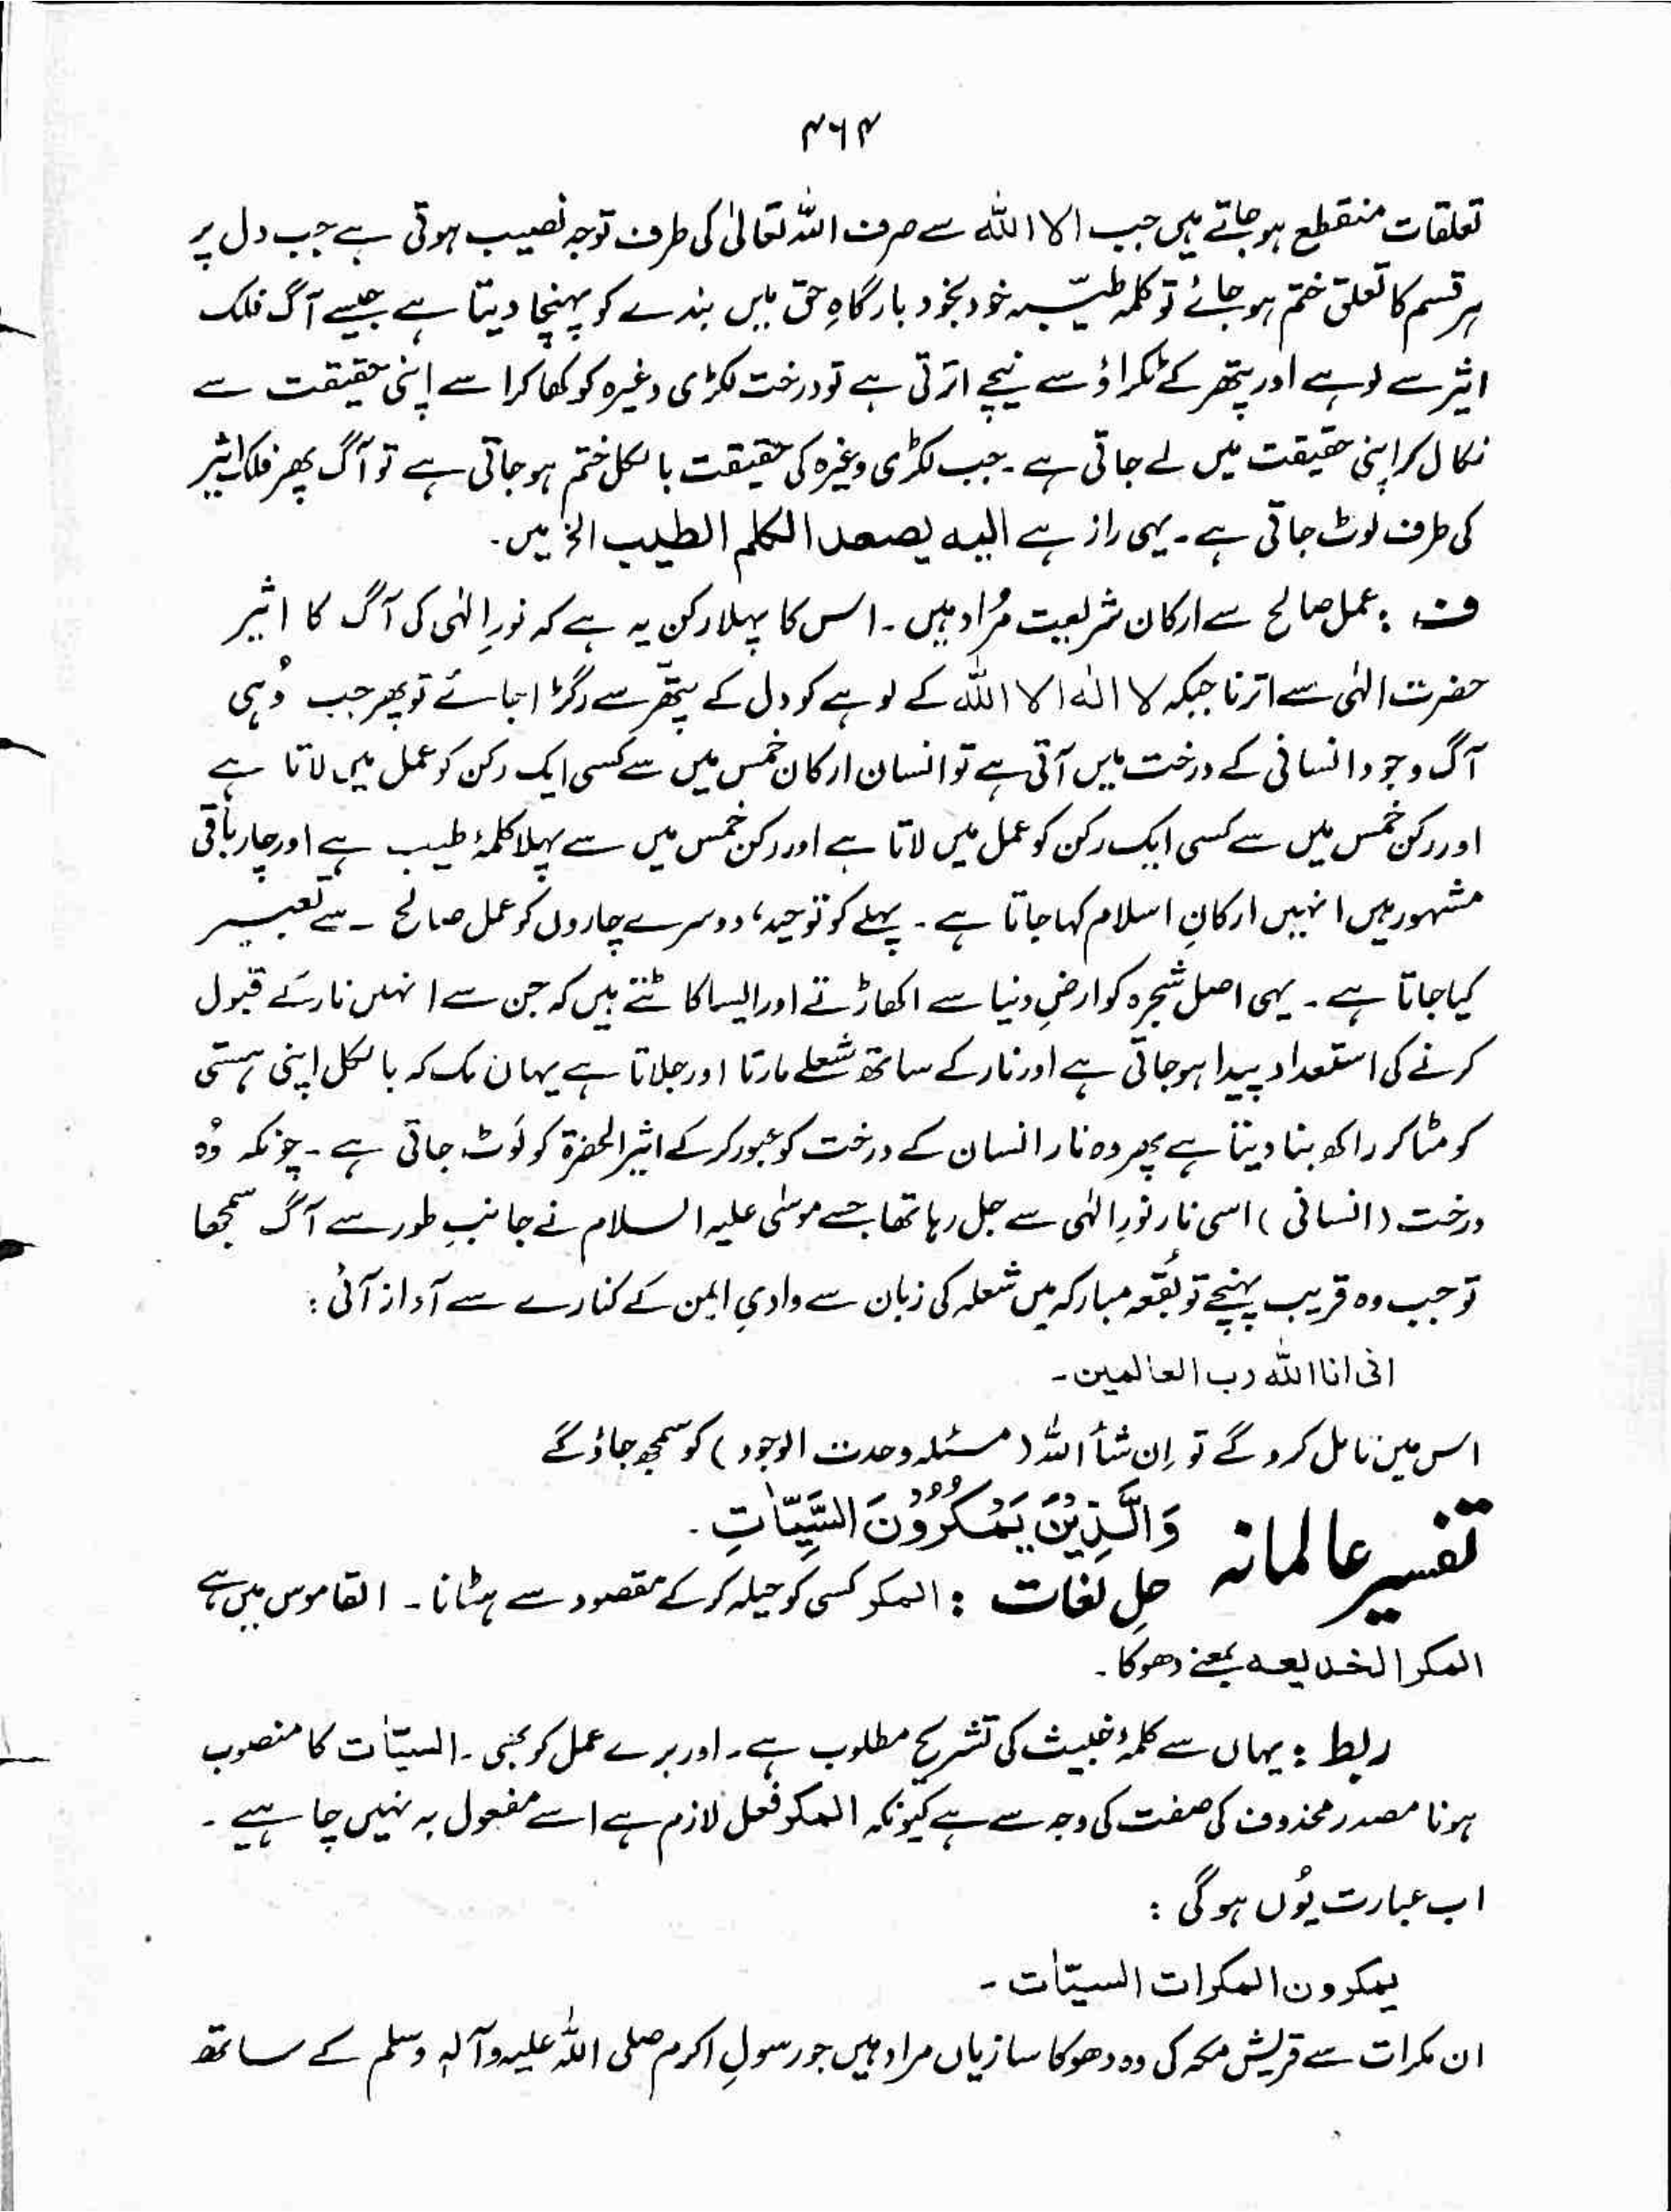 ۴۶۴
تعلقات منقطع ہو جاتے ہیں جب الا اللہ سے صرف اللہ تعالیٰ کی طرف توجہ نصیب ہوتی ہے جب دل پر
ہر قسم کا تعلق ختم ہو جائے تو کلمہ طیّبہ خود بخود بارگاہِ حق میں بندے کو پہنچا دیتا ہے جیسے آگ فلک
اثیر سے لوہے اور پتھر کے ٹکراؤ سے نیچے اترتی ہے تو درخت لکڑی وغیرہ کو کھا کر اسے اپنی حقیقت سے
نکال کر اپنی حقیقت میں لے جاتی ہے۔ جب لکڑی وغیرہ کی حقیقت بالکل ختم ہو جاتی ہے تو آگ پھر فلک اثیر
کی طرف لوٹ جاتی ہے۔ یہی راز ہے الیہ یصعد الکلم الطیب الخ میں۔
ف : عمل صالح سے ارکان شریعت مُراد ہیں۔ اس کا پہلا رکن یہ ہے کہ نورِ الٰہی کی آگ کا اثیر
حضرت الٰہی سے اترنا جبکہ لا الٰہ الا اللہ کے لوہے کو دل کے پتھر سے رگڑا جائے تو پھر جب وُہی
آگ وجود انسانی کے درخت میں آتی ہے تو انسان ارکان خمس میں سے کسی ایک رکن کو عمل میں لاتا ہے
اور رکن خمس میں سے کسی ایک رکن کو عمل میں لاتا ہے اور رکن خمس میں سے پہلا کلمۂ طیب ہے اور چار باقی
مشہور ہیں انہیں ارکانِ اسلام کہا جاتا ہے۔ پہلے کو توحید، دوسرے چاروں کو عمل صالح ۔ سے تعبیر
کیا جاتا ہے۔ یہی اصل شجرہ کو ارضِ دنیا سے اکھاڑتے اور ایسا کاٹتے ہیں کہ جن سے انہیں نار کے قبول
کرنے کی استعداد پیدا ہو جاتی ہے اور نار کے ساتھ شعلے مارتا اور جلاتا ہے یہاں تک کہ بالکل اپنی ہستی
کو مٹا کر راکھ بنا دیتا ہے پھر وہ نار انسان کے درخت کو عبور کر کے اثیر الحضرۃ کو لَوٹ جاتی ہے۔ چونکہ وُہ
درخت (انسانی) اسی نار نورِ الٰہی سے جل رہا تھا جسے موسٰی علیہ السلام نے جانبِ طور سے آگ سمجھا
تو جب وہ قریب پہنچے تو بُقعہ مبارکہ میں شعلہ کی زبان سے وادیِ ایمن کے کنارے سے آواز آئی :
انی انا اللہ رب العالمین۔
اس میں تامل کرو گے تو اِن شأ اللہ (مسئلہ وحدت الوجود) کو سمجھ جاؤ گے
تفسیر عالمانہ وَالَّذِیْنَ یَمْکُرُوْنَ السَّیِّاٰتِ۔
حلِ لغات : المکر کسی کو حیلہ کر کے مقصود سے ہٹانا۔ القاموس میں ہے
المکر الخدیعہ بمعنے دھوکا۔
ربط : یہاں سے کلمۂ خبیث کی تشریح مطلوب ہے۔ اور برے عمل کو بھی۔ السیّاٰت کا منصوب
ہونا مصدر محذوف کی صفت کی وجہ سے ہے کیونکہ المکر فعل لازم ہے اسے مفعول بہ نہیں چاہیے۔
اب عبارت یُوں ہوگی :
یمکرون المکرات السیّاٰت ۔
ان مکرات سے قریشِ مکہ کی وہ دھوکا سازیاں مراد ہیں جو رسولِ اکرم صلی اللہ علیہ وآلہٖ وسلم کے ساتھ